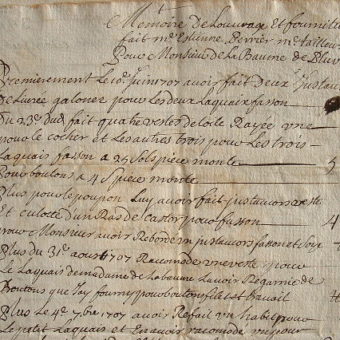 Memoire de Louvrage et fournitu
fait me Estienne Perrier me tailleu
pour Monsieur de La Baume de Pluv
Premierement Le 10e Juin 1707 avoir fait deux Justau
de Livrée galonez pour les deux Laquais fasson
Du 23e dud fait quatre vestes de toile Rayée vne
pour le cocher et Les autres trois pour Les trois
Laquais fasson a 25 sols piece monte 5
pour boutons a 4 s piece monte
Plus pour le poupon Luy avoir fait justaucorps veste
Et culotte d'un Ras de castor pour fasson 4
pour Monsieur avoir Rebordé un justaucorps fasson et soye
Plus du 31e aoust 1707 Racomodé vne veste pour
Le Laquais de madame de la baume Lavoir Regarnie de
Boutons que Jay fourny pour boutons fil et travail
Plus Le 4e 7bre 1707 avoir Refait vn habit pour
Le petit Laquais et En avoir racomodé vn pour